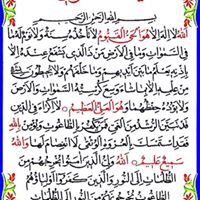 بِسْمِ اللهِ الرَّحْمٰنِ الرَّحِيْمِ
اَللهُ لَا اِلٰهَ اِلَّا هُوَ الْحَيُّ الْقَيُّوْمُ لَا تَأْخُذُهُ سِنَةٌ وَلَا نَوْمٌ لَهُ مَا
فِي السَّمٰوَاتِ وَمَا فِي الْاَرْضِ مَنْ ذَا الَّذِيْ يَشْفَعُ عِنْدَهُ اِلَّا
بِاِذْنِهِ يَعْلَمُ مَا بَيْنَ اَيْدِيْهِمْ وَمَا خَلْفَهُمْ وَلَا يُحِيْطُوْنَ بِشَيْءٍ
مِنْ عِلْمِهِ اِلَّا بِمَا شَاءَ وَسِعَ كُرْسِيُّهُ السَّمٰوَاتِ وَالْاَرْضَ
وَلَا يَؤُدُهُ حِفْظُهُمَا وَهُوَ الْعَلِيُّ الْعَظِيْمُ لَا اِكْرَاهَ فِي الدِّيْنِ
قَدْ تَبَيَّنَ الرُّشْدُ مِنَ الْغَيِّ فَمَنْ يَكْفُرْ بِالطَّاغُوْتِ وَيُؤْمِنْ بِاللهِ
فَقَدِ اسْتَمْسَكَ بِالْعُرْوَةِ الْوُثْقٰى لَا انْفِصَامَ لَهَا وَاللهُ
سَمِيْعٌ عَلِيْمٌ اَللهُ وَلِيُّ الَّذِيْنَ اٰمَنُوْا يُخْرِجُهُمْ مِنَ
الظُّلُمَاتِ اِلَى النُّوْرِ وَالَّذِيْنَ كَفَرُوْا اَوْلِيَاؤُهُمُ
الطَّاغُوْتُ يُخْرِجُوْنَهُمْ مِنَ النُّوْرِ اِلَى الظُّلُمَاتِ